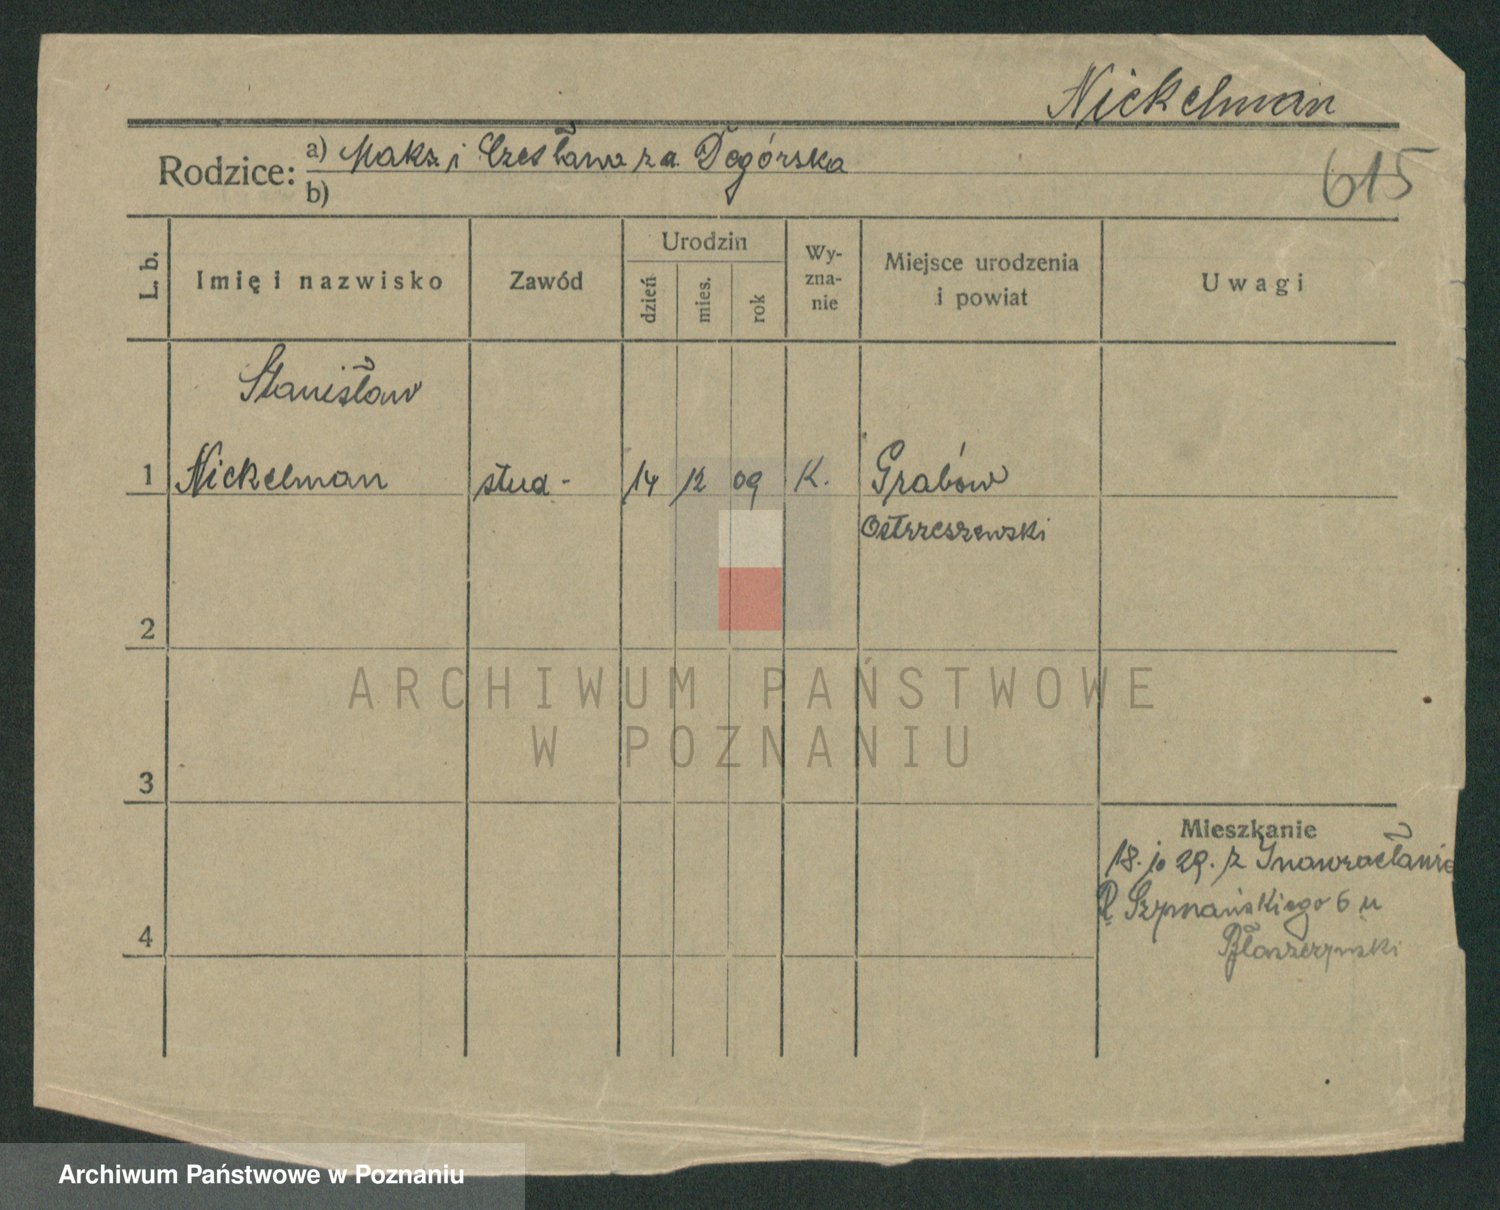 Nickelman
Rodzice: a) Maks i Czesława z d.
b)
615
L. b.
Imię i nazwisko
Zawód
Urodzin
dzień
mies.
rok
Wy-
zna-
nie
Miejsce urodzenia
i powiat
Uwagi
Stanisław
1 Nickelman stud - 14 12 09 K. Grabów
Ostrzeszewski
2
3
4
Mieszkanie
18. 10 29. z Inowrocławia
Szymańskiego 6 u
ARCHIWUM PAŃSTWOWE
W POZNANIU
Archiwum Państwowe w Poznaniu